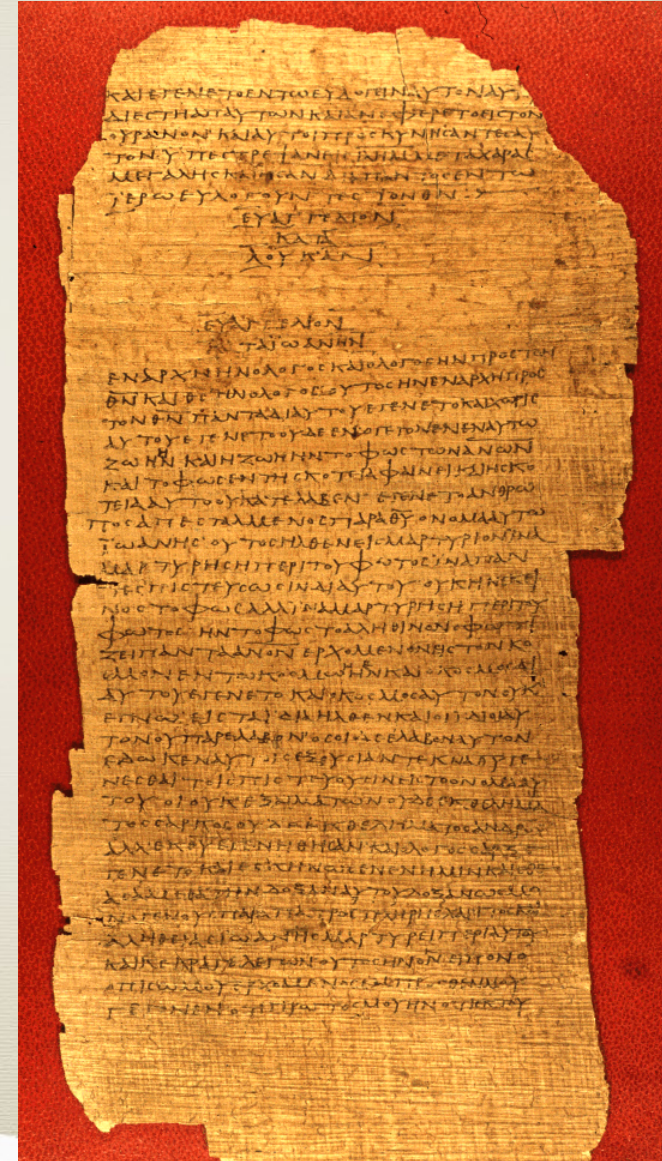 ΚΑΙΕΓΕΝΕΤΟΕΝΤΩΕΥΛΟΓΕΙΝΑΥΤΟΝΑΥ
ΔΙΕϹΤΗΑΠΑΥΤΩΝΚΑΙΑΝΕΦΕΡΕΤΟΕΙϹΤΟΝ
ΟΥΡΑΝΟΝ ΚΑΙΑΥΤΟΙΠΡΟϹΚΥΝΗϹΑΝΤΕϹΑΥ
ΤΟΝΥΠΕϹΤΡΕΨΑΝ ΜΕΤΑΧΑΡΑϹ
ΜΕΓΑΛΗϹΚΑΙΗϹΑΝΔΙΑΠΑΝΤΟϹΕΝΤΩ
ΙΕΡΩΕΥΛΟΓΟΥΝΤΕϹΤΟΝΘΝ
ΕΥΑΓΓΕΛΙΟΝ
ΚΑΤΑ
ΛΟΥΚΑΝ
ΕΥΑΓΓΕΛΙΟΝ
ΚΑΤΑΪΩΑΝΗΝ
ΕΝΑΡΧΗΗΝΟΛΟΓΟϹΚΑΙΟΛΟΓΟϹΗΝΠΡΟϹΤΟΝ
ΘΝΚΑΙΘϹΗΝΟΛΟΓΟϹΟΥΤΟϹΗΝΕΝΑΡΧΗΠΡΟϹ
ΤΟΝΘΝΠΑΝΤΑΔΙΑΥΤΟΥΕΓΕΝΕΤΟΚΑΙΧΩΡΙϹ
ΑΥΤΟΥΕΓΕΝΕΤΟΟΥΔΕΕΝ·ΟΓΕΓΟΝΕΝΕΝΑΥΤΩ
ΖΩΗΗΝΚΑΙΗΖΩΗΗΝΤΟΦΩϹΤΩΝΑΝΩΝ
ΚΑΙΤΟΦΩϹΕΝΤΗϹΚΟΤΕΙΑΦΑΙΝΕΙΚΑΙΗϹΚΟ
ΤΕΙΑΑΥΤΟΟΥΚΑΤΕΛΑΒΕΝ· ΕΓΕΝΕΤΟΑΝΘΡΩ
ΠΟϹΑΠΕϹΤΑΛΜΕΝΟϹΠΑΡΑΘΥΟΝΟΜΑΑΥΤΩ
ΪΩΑΝΗϹ·ΟΥΤΟϹΗΛΘΕΝΕΙϹΜΑΡΤΥΡΙΟΝΪΝΑ
ΜΑΡΤΥΡΗϹΗΠΕΡΙΤΟΥΦΩΤΟϹΪΝΑΠΑΝ
ΤΕϹΠΙϹΤΕΥϹΩϹΙΝΔΙΑΥΤΟΥ·ΟΥΚΗΝΕΚΕΙ
ΝΟϹΤΟΦΩϹΑΛΛΪΝΑΜΑΡΤΥΡΗϹΗΠΕΡΙΤΟΥ
ΦΩΤΟϹ·ΗΝΤΟΦΩϹΤΟΑΛΗΘΙΝΟΝΟΦΩΤΙ
ΖΕΙΠΑΝΤΑΑΝΟΝ ΕΡΧΟΜΕΝΟΝΕΙϹΤΟΝΚΟ
ϹΜΟΝΕΝΤΩΚΟϹΜΩΗΝΚΑΙΟΚΟϹΜΟϹΔΙ
ΑΥΤΟΥΕΓΕΝΕΤΟΚΑΙΟΚΟϹΜΟϹΑΥΤΟΝΟΥΚ
ΕΓΝΩ·ΕΙϹΤΑΪΔΙΑΗΛΘΕΝΚΑΙΟΙΪΔΙΟΙΑΥ
ΤΟΝΟΥΠΑΡΕΛΑΒΟΝ·ΟϹΟΙΔΕΕΛΑΒΟΝΑΥΤΟΝ
ΕΔΩΚΕΝΑΥΤΟΙϹΕΞΟΥϹΙΑΝΤΕΚΝΑΘΥΓΕ
ΝΕϹΘΑΙΤΟΙϹΠΙϹΤΕΥΟΥϹΙΝΕΙϹΤΟΟΝΟΜΑΑΥ
ΤΟΥ·ΟΙΟΥΚΕΞΑΙΜΑΤΩΝΟΥΔΕΕΚΘΕΛΗΜΑ
ΤΟϹϹΑΡΚΟϹΟΥΔΕΕΚΘΕΛΗΜΑΤΟϹΑΝΔΡΟϹ
ΑΛΛΑΕΚΘΥΕΓΕΝΗΘΗϹΑΝΚΑΙΟΛΟΓΟϹϹΑΡΞΕ
ΓΕΝΕΤΟΚΑΙΕϹΚΗΝΩϹΕΝΕΝΗΜΙΝΚΑΙΕΘΕ
ΑϹΑΜΕΘΑΤΗΝΔΟΞΑΝΑΥΤΟΥΔΟΞΑΝΩϹΜΟ
ΝΟΓΕΝΟΥϹΠΑΡΑΠΑΤΡΟϹΠΛΗΡΗϹΧΑΡΙΤΟϹΚΑΙ
ΑΛΗΘΕΙΑϹΪΩΑΝΗϹΜΑΡΤΥΡΕΙΠΕΡΙΑΥΤΟΥ
ΚΑΙΚΕΚΡΑΓΕΛΕΓΩΝΟΥΤΟϹΗΝΟΝΕΙΠΟΝΟ
ΟΠΙϹΩΜΟΥΕΡΧΟΜΕΝΟϹΕΜΠΡΟϹΘΕΝΜΟΥ
ΓΕΓΟΝΕΝΟΤΙΠΡΩΤΟϹΜΟΥΗΝΟΤΙΕΚΤΟΥ